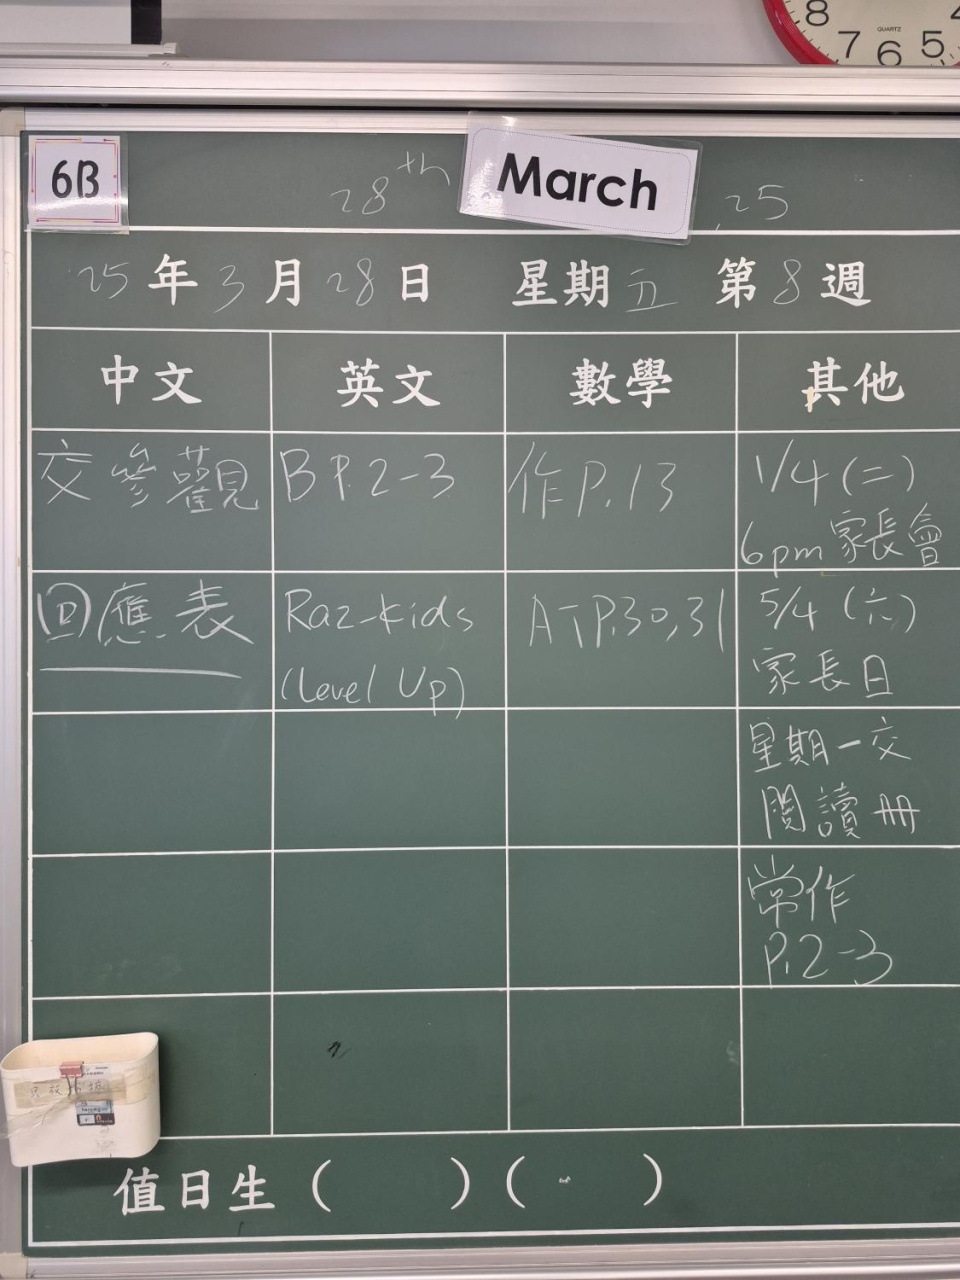 8 7 6 5 4
QUARTZ
6B
28th March 25
25年3月28日 星期五 第8週
中文 英文 數學 其他
交參觀 B P.2-3 作P.13 1/4(二)
6pm家長會
回應表 Raz-kids A下P.30,31 5/4(六)
(Level Up) 家長日
星期一交
閱讀冊
常作
P.2-3
值日生( )( )